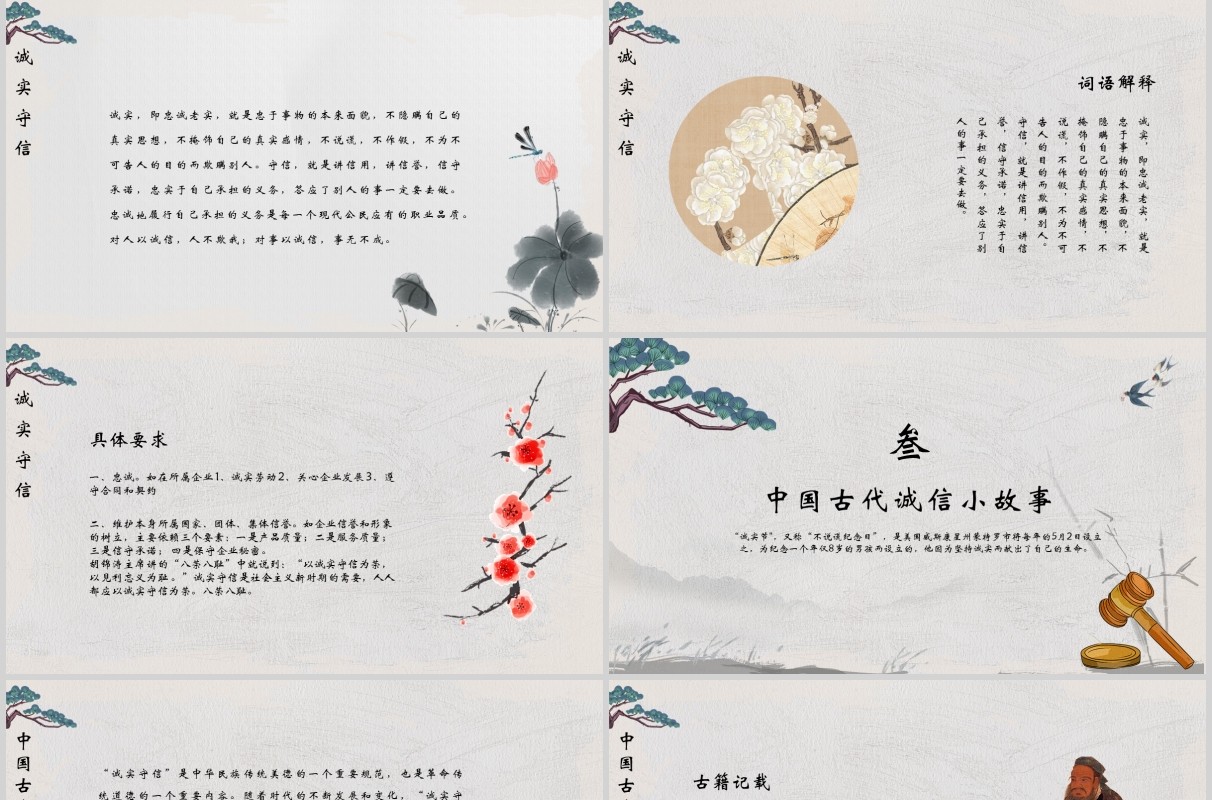 诚实守信
诚实，即忠诚老实，就是忠于事物的本来面貌，不隐瞒自己的
真实思想，不掩饰自己的真实感情，不说谎，不作假，不为不
可告人的目的而欺瞒别人。守信，就是讲信用，讲信誉，信守
承诺，忠实于自己承担的义务，答应了别人的事一定要去做。
忠诚地履行自己承担的义务是每一个现代公民应有的职业品质。
对人以诚信，人不欺我；对事以诚信，事无不成。
诚实守信
词语解释
诚实，即忠诚老实，就是
忠于事物的本来面貌，不
隐瞒自己的真实思想，不
掩饰自己的真实感情，不
说谎，不作假，不为不可
告人的目的而欺瞒别人。
守信，就是讲信用，讲信
誉，信守承诺，忠实于自
己承担的义务，答应了别
人的事一定要去做。
诚实守信
具体要求
一、忠诚。如在所属企业1、诚实劳动2、关心企业发展3、遵
守合同和契约
二、维护本身所属国家、团体、集体信誉。如企业信誉和形象
的树立，主要依赖三个要素：一是产品质量；二是服务质量；
三是信守承诺；四是保守企业秘密。
胡锦涛主席讲的“八荣八耻”中就说到：“以诚实守信为荣，
以见利忘义为耻。”诚实守信是社会主义新时期的需要，人人
都应以诚实守信为荣。八荣八耻。
叁
中国古代诚信小故事
“诚实节”，又称“不说谎纪念日”，是美国威斯康星州蒙特罗市将每年的5月2日设立
之，为纪念一个年仅8岁的男孩而设立的，他因为坚持诚实而献出了自己的生命。
中国古
“诚实守信”是中华民族传统美德的一个重要规范，也是革命传
统道德的一个重要内容。随着时代的不断发展和变化，“诚实守
中国古
古籍记载